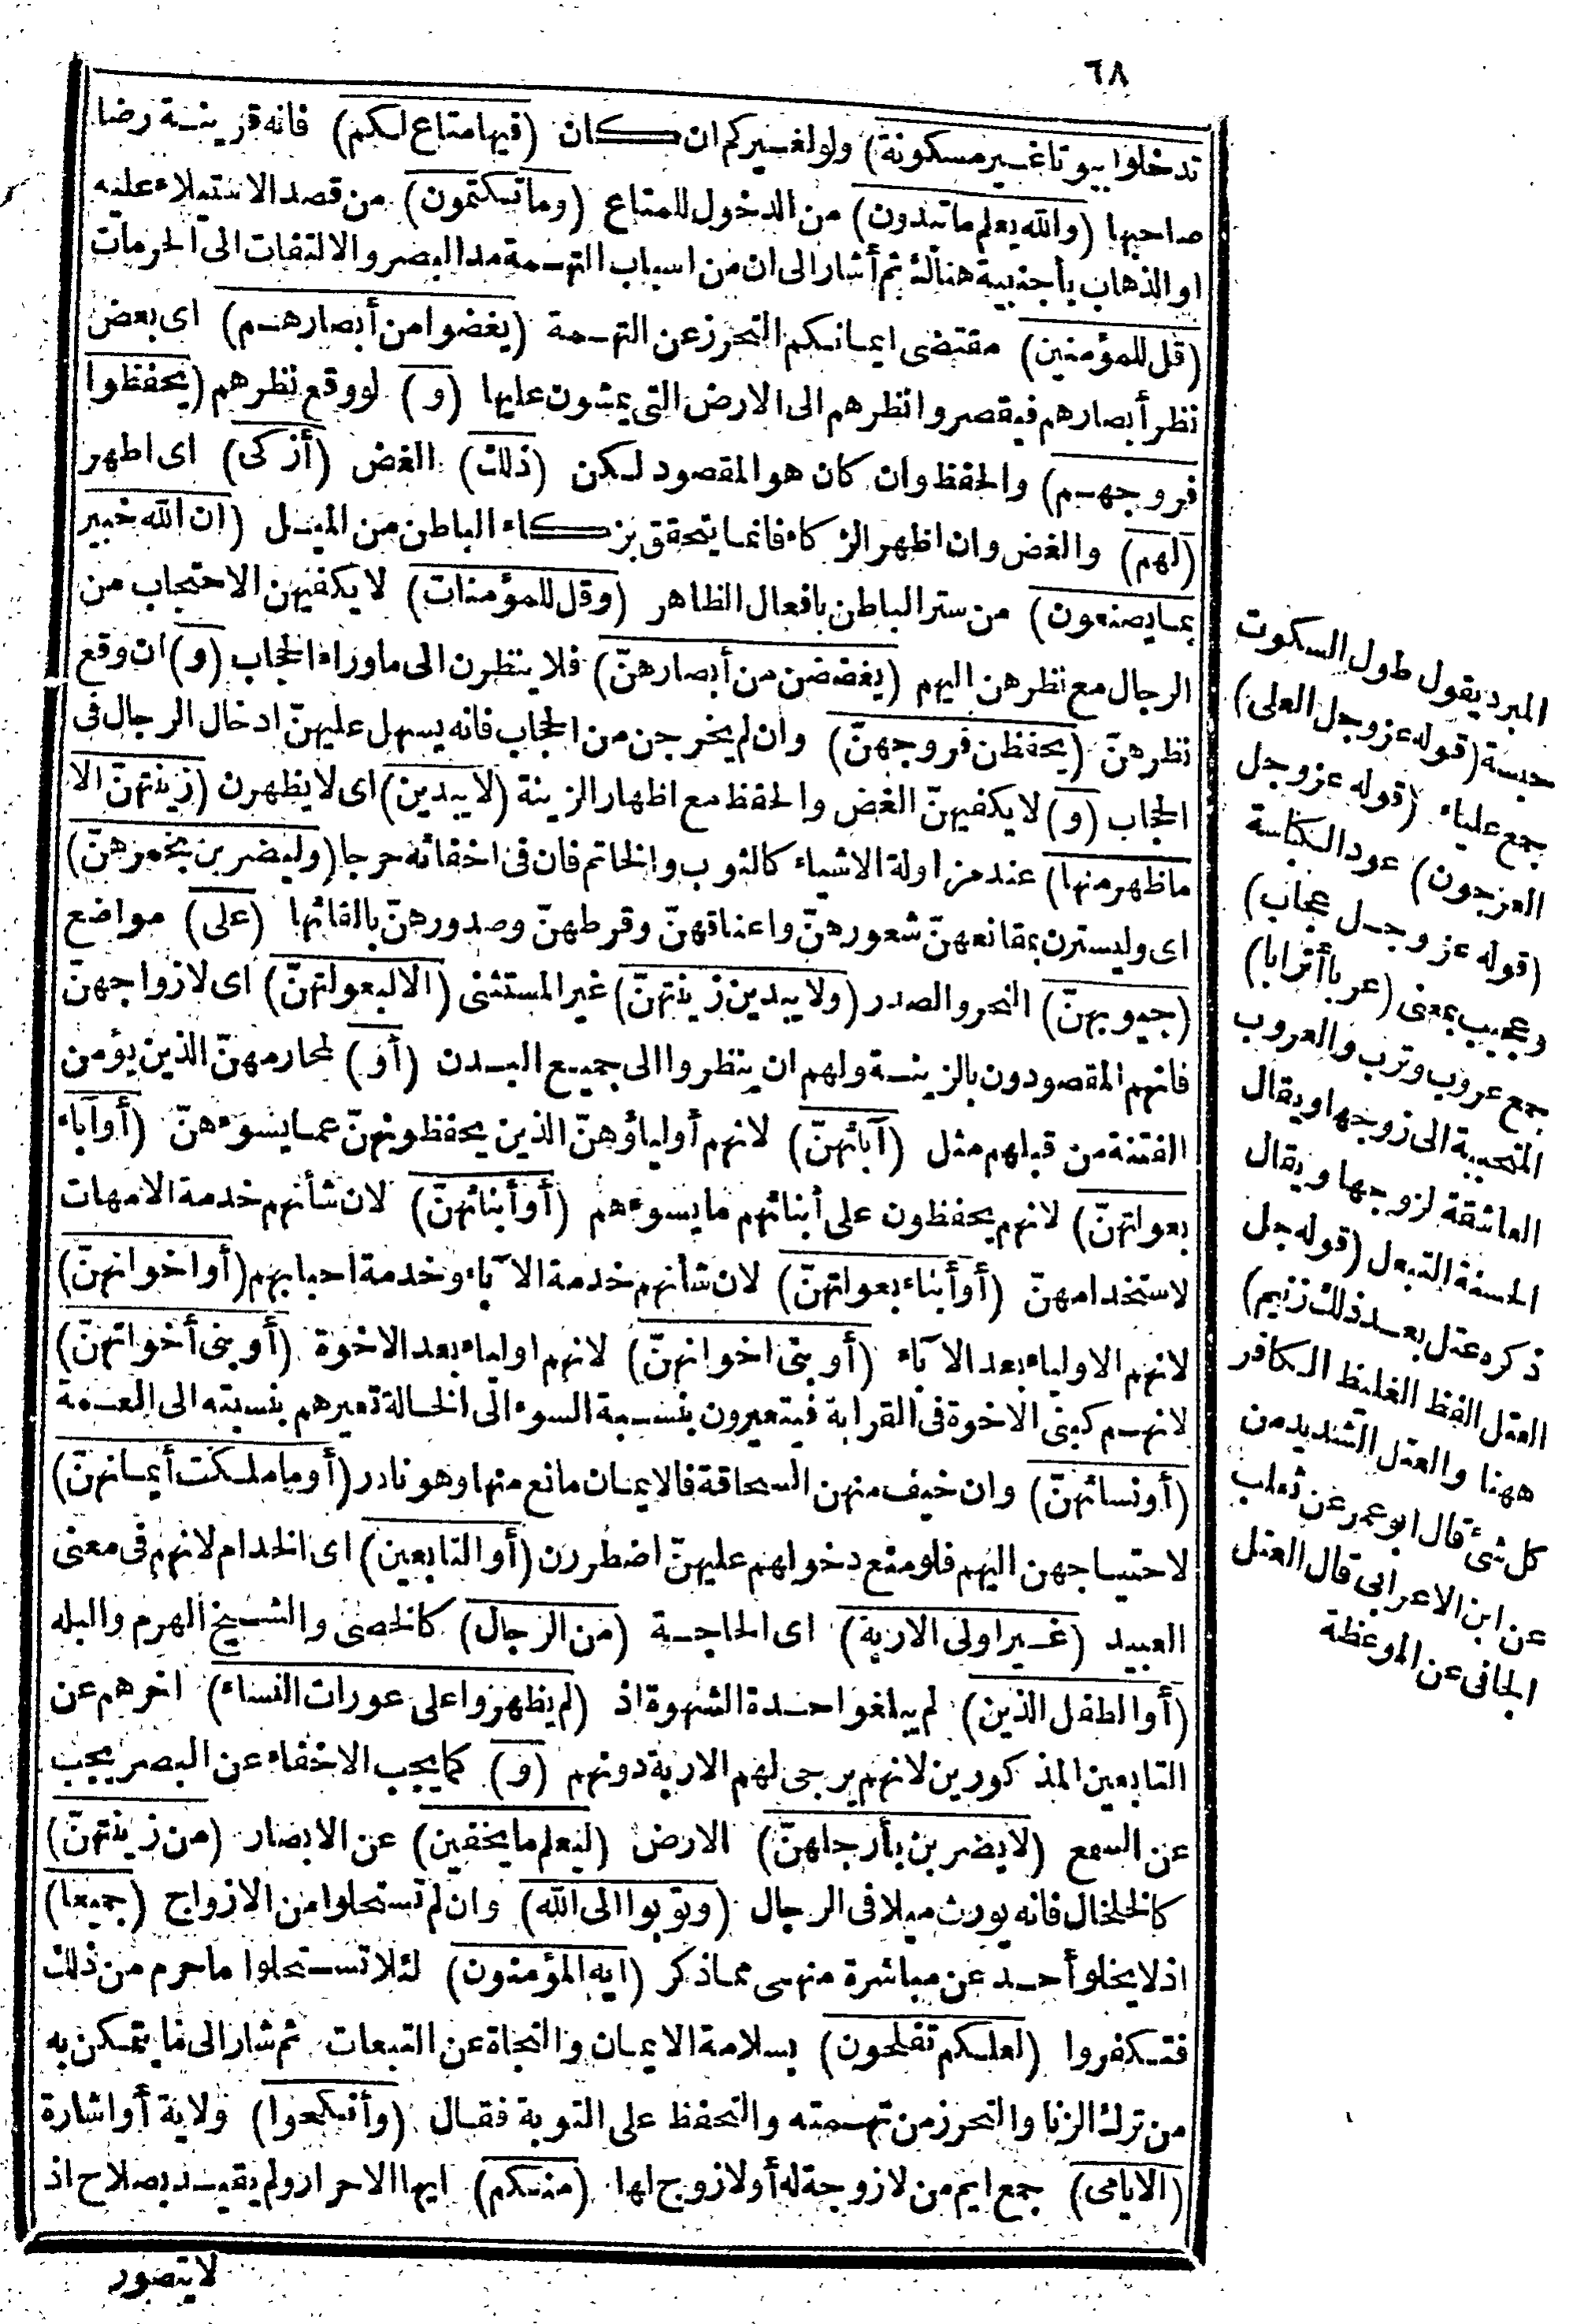 ٦٨
تدخلوا بيوتا غير مسكونة) ولو لغيركم ان كان (فيها متاع لكم) فانه قرينة رضا
صاحبها (والله يعلم ما تبدون) من الدخول للمتاع (وما تكتمون) من قصد الاستيلاء عليه
او الذهاب بأجنبية هنالك ثم أشار الى ان من اسباب التهمة مد البصر والالتفات الى الحرمات
(قل للمؤمنين) مقتضى ايمانكم التحرز عن التهمة (يغضوا من أبصارهم) اى بعض
نظر أبصارهم فيقصروا نظرهم الى الارض التى يمشون عليها (و) لو وقع نظرهم (يحفظوا
فروجهم) والحفظ وان كان هو المقصود لكن (ذلك) الغض (أزكى) اى اطهر
(لهم) والغض وان اظهر الزكاء فانما يتحقق بزكاء الباطن من الميل (ان الله خبير
بما يصنعون) من ستر الباطن بافعال الظاهر (وقل للمؤمنات) لا يكفيهن الاحتجاب من
الرجال مع نظرهن اليهم (يغضضن من أبصارهنّ) فلا ينظرن الى ما وراء الحجاب (و) ان وقع
نظرهنّ (يحفظن فروجهنّ) وان لم يخرجن من الحجاب فانه يسهل عليهنّ ادخال الرجال فى
الحجاب (و) لا يكفيهنّ الغض والحفظ مع اظهار الزينة (لا يبدين) اى لا يظهرن (زينتهنّ الا
ما ظهر منها) عند مزاولة الاشياء كالثوب والخاتم فان فى اخفائه حرجا (وليضربن بخمرهنّ)
اى وليسترن بمقانعهنّ شعورهنّ واعناقهنّ وقرطهنّ وصدورهنّ بالقائها (على) مواضع
(جيوبهنّ) النحر والصدر (ولا يبدين زينتهنّ) غير المستثنى (الا لبعولتهنّ) اى لازواجهنّ
فانهم المقصودون بالزينة ولهم ان ينظروا الى جميع البدن (أو) لمحارمهنّ الذين يؤمن
الفتنة من قبلهم مثل (آبائهنّ) لانهم أولياؤهنّ الذين يحفظونهنّ عما يسوءهنّ (أو آباء
بعولتهنّ) لانهم يحفظون على أبنائهم ما يسوءهم (أو أبنائهنّ) لان شأنهم خدمة الامهات
لاستخدامهنّ (أو أبناء بعولتهنّ) لان شأنهم خدمة الآباء وخدمة احبابهم (أو اخوانهنّ)
لانهم الاولياء بعد الآباء (أو بنى اخوانهنّ) لانهم اولياء بعد الاخوة (أو بنى أخواتهنّ)
لانهم كبنى الاخوة فى القرابة فيتعيرون بنسبة السوء الى الخالة تعيرهم بنسبته الى العمة
(أو نسائهنّ) وان خيف منهن السحاقة فالايمان مانع منها وهو نادر (أو ما ملكت أيمانهنّ)
لاحتياجهن اليهم فلو منع دخولهم عليهنّ اضطررن (أو التابعين) اى الخدام لانهم فى معنى
العبيد (غير اولى الاربة) اى الحاجة (من الرجال) كالخصى والشيخ الهرم والبله
(أو الطفل الذين) لم يبلغوا حد الشهوة اذ (لم يظهروا على عورات النساء) اخرهم عن
التابعين المذكورين لانهم يرجى لهم الاربة دونهم (و) كما يجب الاخفاء عن البصر يجب
عن السمع (لا يضربن بأرجلهنّ) الارض (ليعلم ما يخفين) عن الابصار (من زينتهنّ)
كالخلخال فانه يورث ميلا فى الرجال (وتوبوا الى الله) وان لم تستحلوا من الازواج (جميعا)
اذ لا يخلو أحد عن مباشرة منهى مما ذكر (ايه المؤمنون) لئلا تستحلوا ما حرم من ذلك
فتكفروا (لعلكم تفلحون) بسلامة الايمان والنجاة عن التبعات ثم شار الى ما يتمكن به
من ترك الزنا والتحرز من تهمته والتحفظ على التوبة فقال (وأنكحوا) ولاية أو اشارة
(الايامى) جمع ايم من لا زوجة له أو لا زوج لها (منكم) ايها الاحرار ولم يقيد بصلاح اذ
لا يتصور
المبرد يقول طول السكوت
حبسة (قوله عز وجل العلى)
جمع علياء (قوله عز وجل
العرجون) عود الكباسة
(قوله عز وجل عجاب)
وعجيب بمعنى (عربا أترابا)
جمع عروب وترب والعروب
المتحببة الى زوجها ويقال
العاشقة لزوجها ويقال
الحسنة التبعل (قوله جل
ذكره عتل بعد ذلك زنيم)
العتل الفظ الغليظ الكافر
ههنا والعتل الشديد من
كل شئ قال ابو عمر عن ثعلب
عن ابن الاعرابى قال العتل
الجافى عن الموعظة